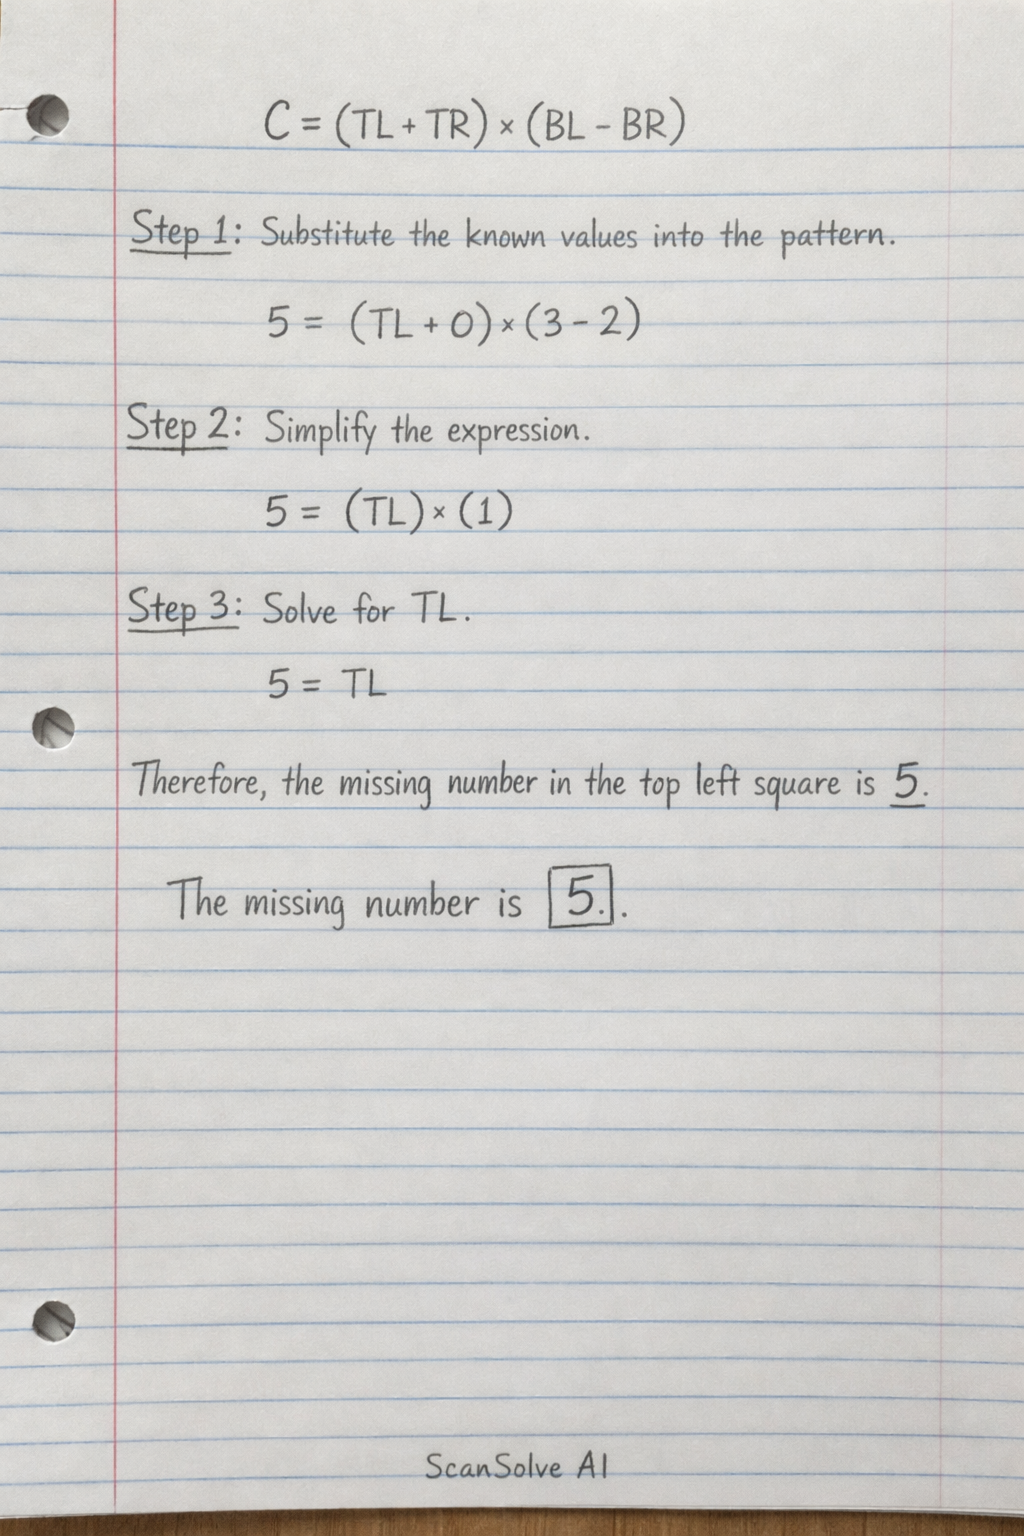 C = (TL + TR) × (BL - BR)
Step 1: Substitute the known values into the pattern.
5 = (TL + 0) × (3 - 2)
Step 2: Simplify the expression.
5 = (TL) × (1)
Step 3: Solve for TL.
5 = TL
Therefore, the missing number in the top left square is 5.
The missing number is 5. .
ScanSolve AI